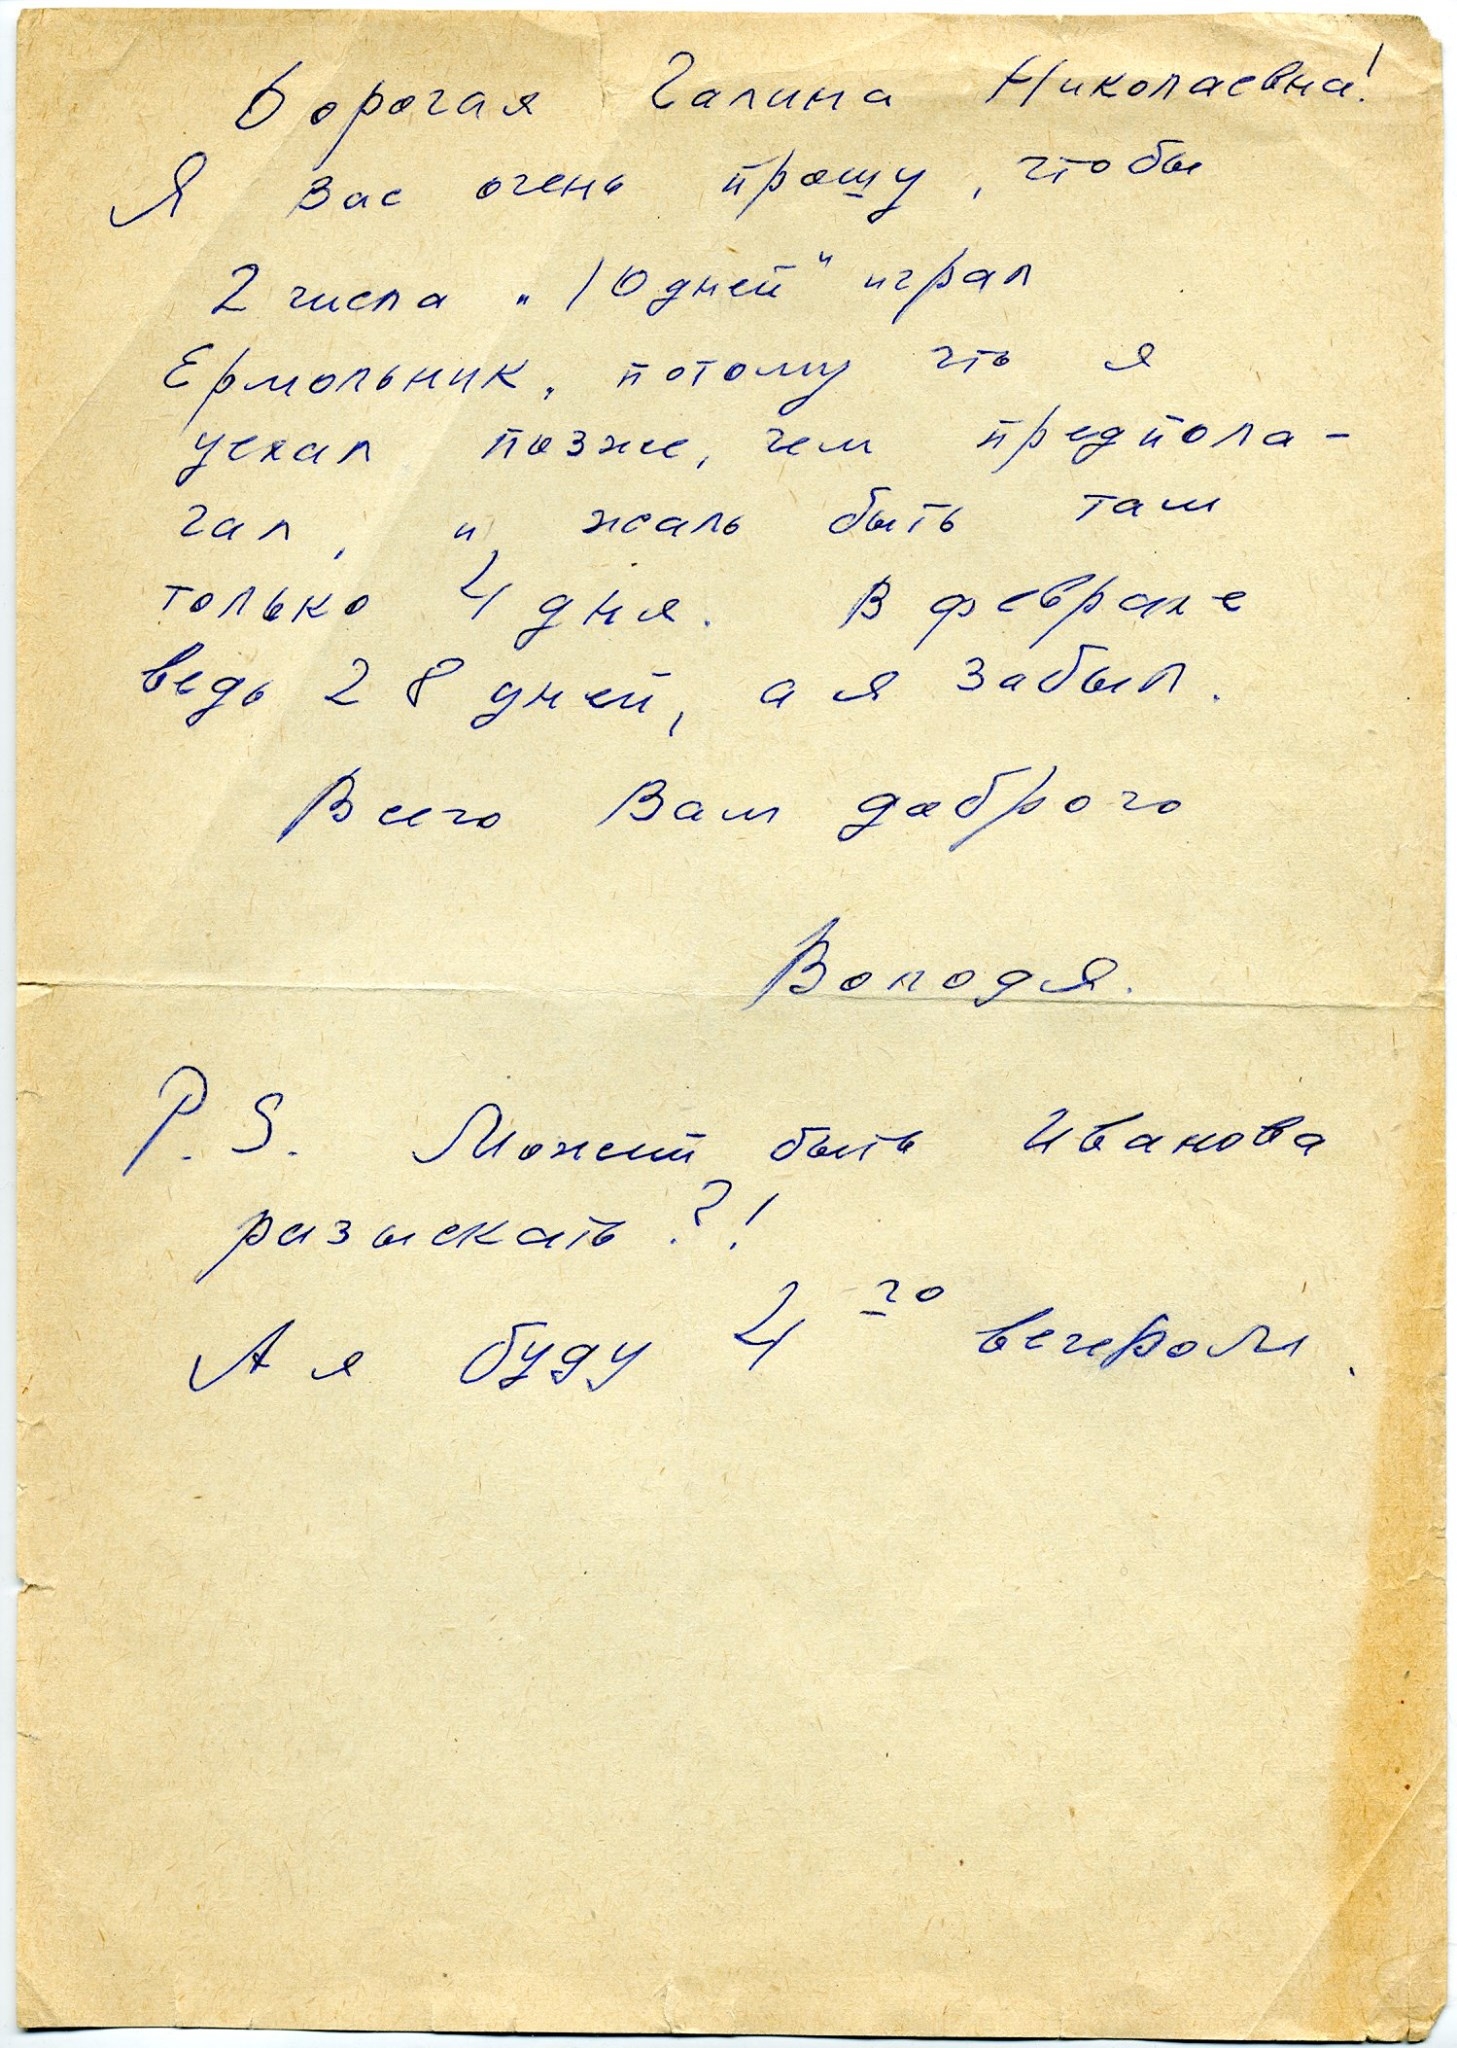 Дорогая Галина Николаевна!
Я Вас очень прошу, чтобы
2 числа „10 дней“ играл
Ермольник, потому что я
уехал позже, чем предпола-
гал, и жаль быть там
только 4 дня. В феврале
ведь 28 дней, а я забыл.
Всего Вам доброго
Володя.
P.S. Может быть Иванова
разыскать?!
А я буду 4го вечером.